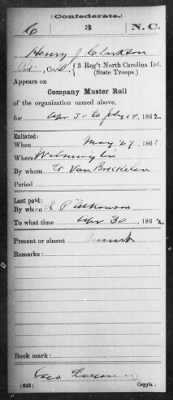 (Confederate.)
C 3 N.C.
Henry J. Clarkson
Co. , 3 Reg't North Carolina Inf.
(State Troops.)
Appears on
Company Muster Roll
of the organization named above,
for Apr 30 to July 14, 1862
Enlisted:
When May 29, 1861
Where Wilmington
By whom Van Bokkelen
Period
Last paid:
By whom R. Parkinson
To what time Apr 30, 1862
Present or absent Present
Remarks:
Book mark:
(642) Copyist.